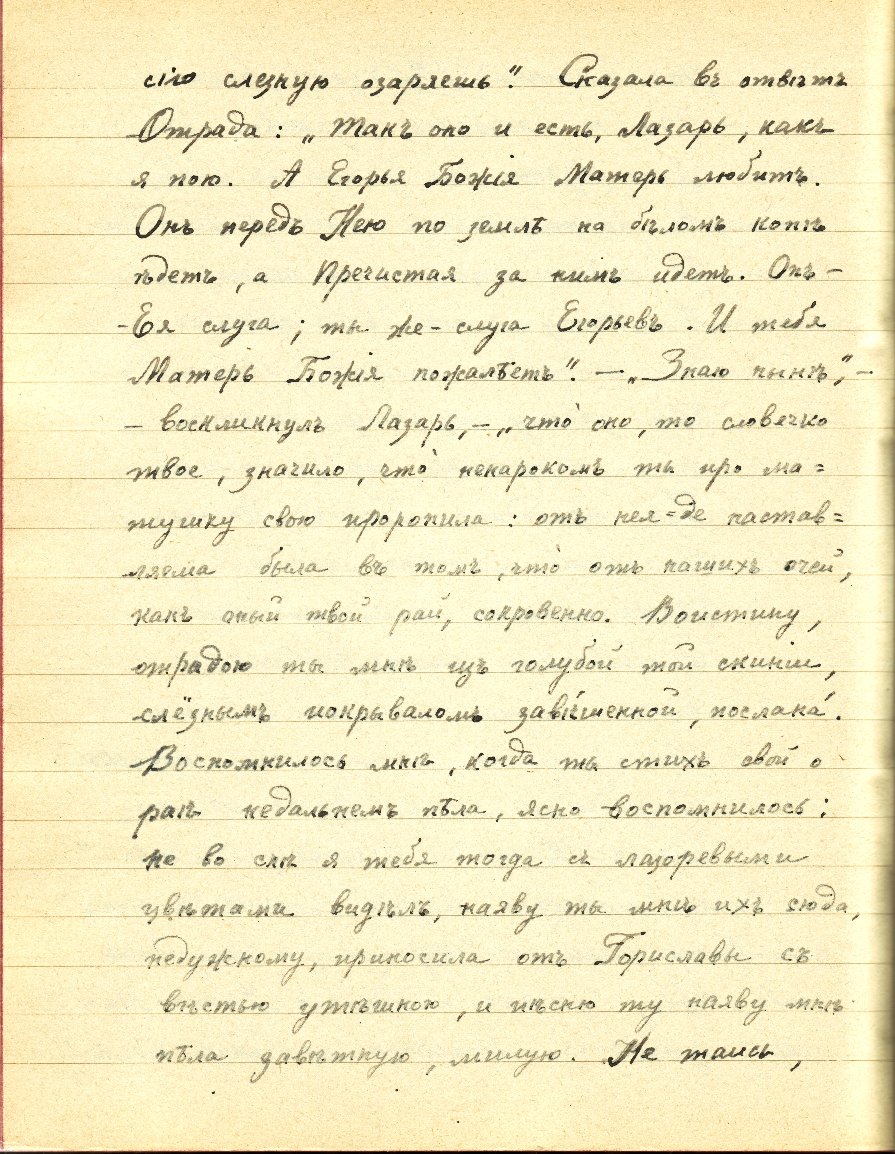 сію слезную озаряешь". Сказала въ отвѣтъ
Отрада: „Такъ оно и есть, Лазарь, какъ
я пою. А Егорья Божія Матерь любитъ.
Онъ передъ Нею по землѣ на бѣломъ конѣ
ѣдетъ, а Пречистая за нимъ идетъ. Онъ –
– Ея слуга; ты же – слуга Егорьевъ. И тебя
Матерь Божія пожалѣетъ". – „Знаю нынѣ", –
– воскликнулъ Лазарь, – „что̀ оно, то словечко
твое, значило, что̀ ненарокомъ ты про ма=
тушку свою проронила: отъ нея=де настав=
ляема была въ томъ, что̀ отъ нашихъ очей,
какъ оный твой рай, сокровенно. Воистину,
отрадою ты мнѣ изъ голубой той скиніи,
слёзнымъ покрываломъ завѣшенной, послана́.
Воспомнилось мнѣ, когда ты стихъ свой о
раѣ недальнемъ пѣла, ясно воспомнилось:
не во снѣ я тебя тогда съ лазоревыми
цвѣтами видѣлъ, наяву ты мнѣ ихъ сюда,
недужному, приносила отъ Гориславы съ
вѣстью утѣшною, и пѣсню ту наяву мнѣ
пѣла завѣтную, милую. Не таись,